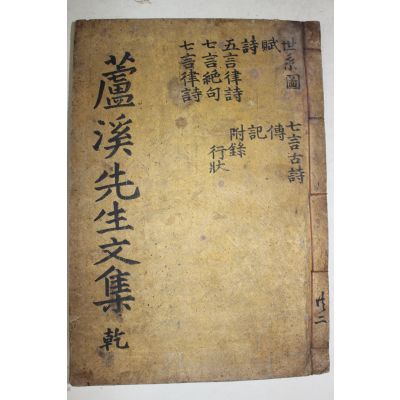 世系圖
賦
詩
五言律詩
七言絶句
七言律詩
七言古詩
傳
記
附錄
行狀
蘆溪先生文集 乾
共二